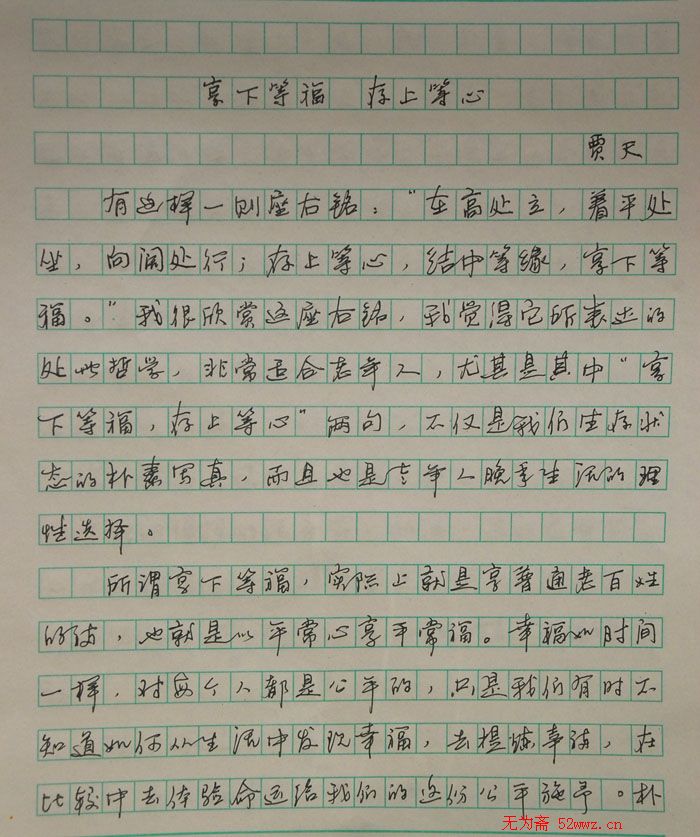 享下等福 存上等心
贾天
有这样一则座右铭："在高处立，着平处
坐，向阔处行；存上等心，结中等缘，享下等
福。"我很欣赏这座右铭，我觉得它所表达的
处世哲学，非常适合老年人，尤其是其中"享
下等福，存上等心"两句，不仅是我们生存状
态的朴素写真，而且也是老年人晚季生活的理
性选择。
所谓享下等福，实际上就是享普通老百姓
的福，也就是以平常心享平常福。幸福如时间
一样，对每个人都是公平的，只是我们有时不
知道如何从生活中发现幸福，去提炼幸福，在
比较中去体验命运给我们的这份公平施予。朴
无为斋 52wwz.cn